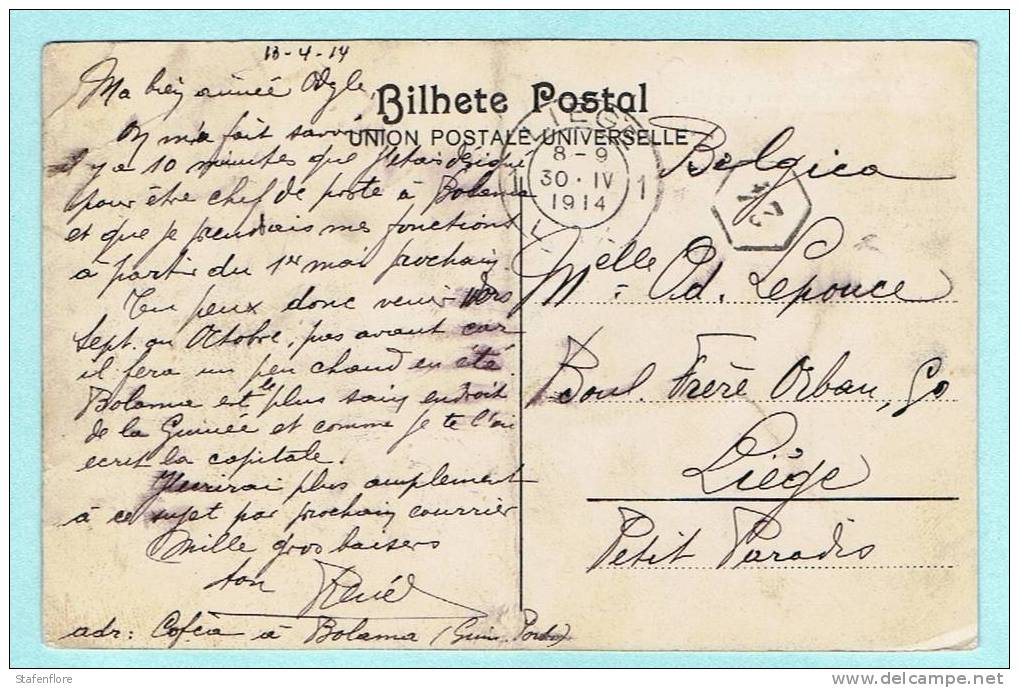 13-4-14
Ma bien aimée Odyle,
On m'a fait savoir
il y a 10 minutes que j'étais désigné
pour être chef de poste à Bolama
et que je prendrais mes fonctions
à partir du 1er mai prochain.
Tu peux donc venir vers
Sept. ou Octobre, pas avant car
il fera un peu chaud en été.
Bolama est le plus sain endroit
de la Guinée et comme je te l'ai
écrit la capitale.
J'écrirai plus amplement
à ce sujet par prochain courrier
Mille gros baisers
ton René
adr: Cofcia à Bolama (Guin. Port.)
Bilhete Postal
UNION POSTALE UNIVERSELLE
LIEGE
8-9
1 30·IV 1
1914
Belgica
Melle Od. Lepouce
Boul. Frère Orban, 90
Liège
Petit Paradis
Stafenflore
delcampe.net